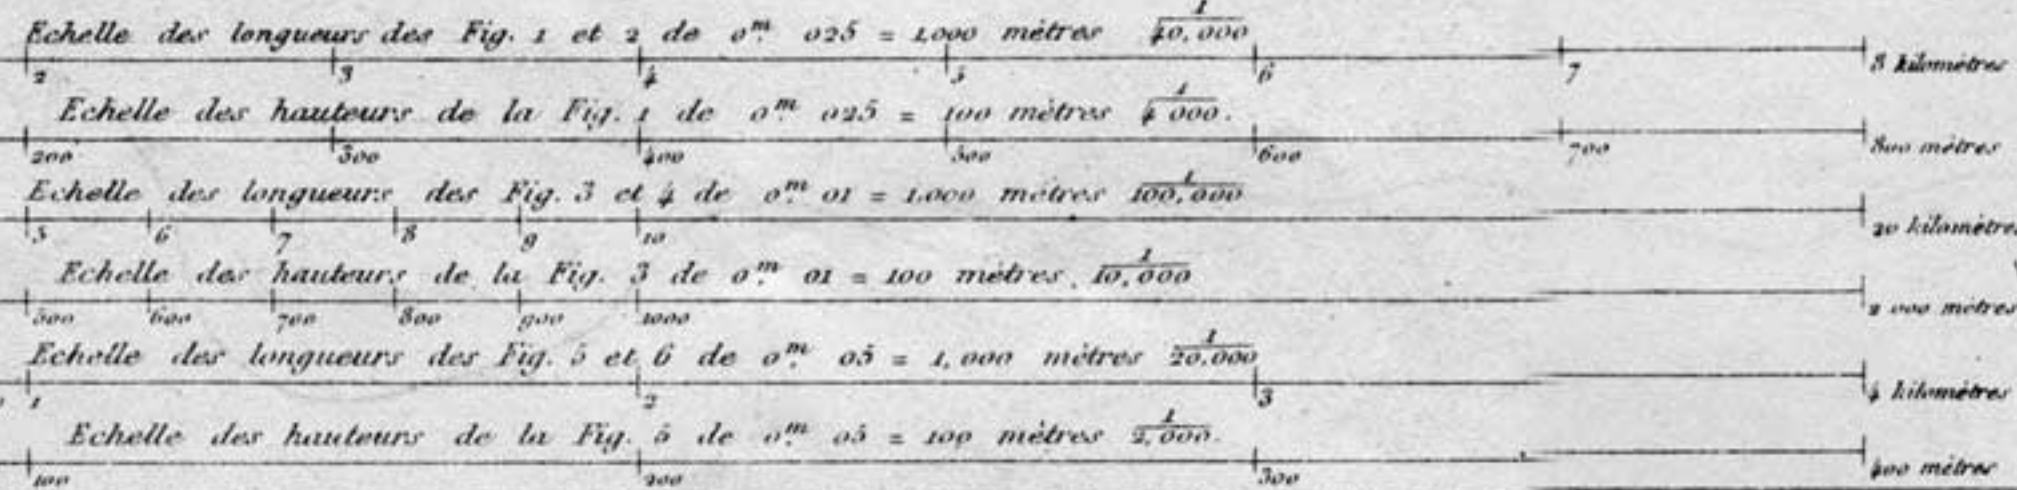 Echelle des longueurs des Fig. 1 et 2 de 0.m 025 = 1.000 mètres 1/40,000
2 3 4 5 6 7 8 kilomètres
Echelle des hauteurs de la Fig. 1 de 0.m 025 = 100 mètres 1/4 000.
200 300 400 500 600 700 800 mètres
Echelle des longueurs des Fig. 3 et 4 de 0.m 01 = 1.000 mètres 1/100,000
5 6 7 8 9 10 20 kilomètres
Echelle des hauteurs de la Fig. 3 de 0.m 01 = 100 mètres. 1/10,000
500 600 700 800 900 1000 2 000 mètres
Echelle des longueurs des Fig. 5 et 6 de 0.m 05 = 1,000 mètres 1/20,000
1 2 3 4 kilomètres
Echelle des hauteurs de la Fig. 5 de 0.m 05 = 100 mètres 1/2,000.
100 200 300 400 mètres